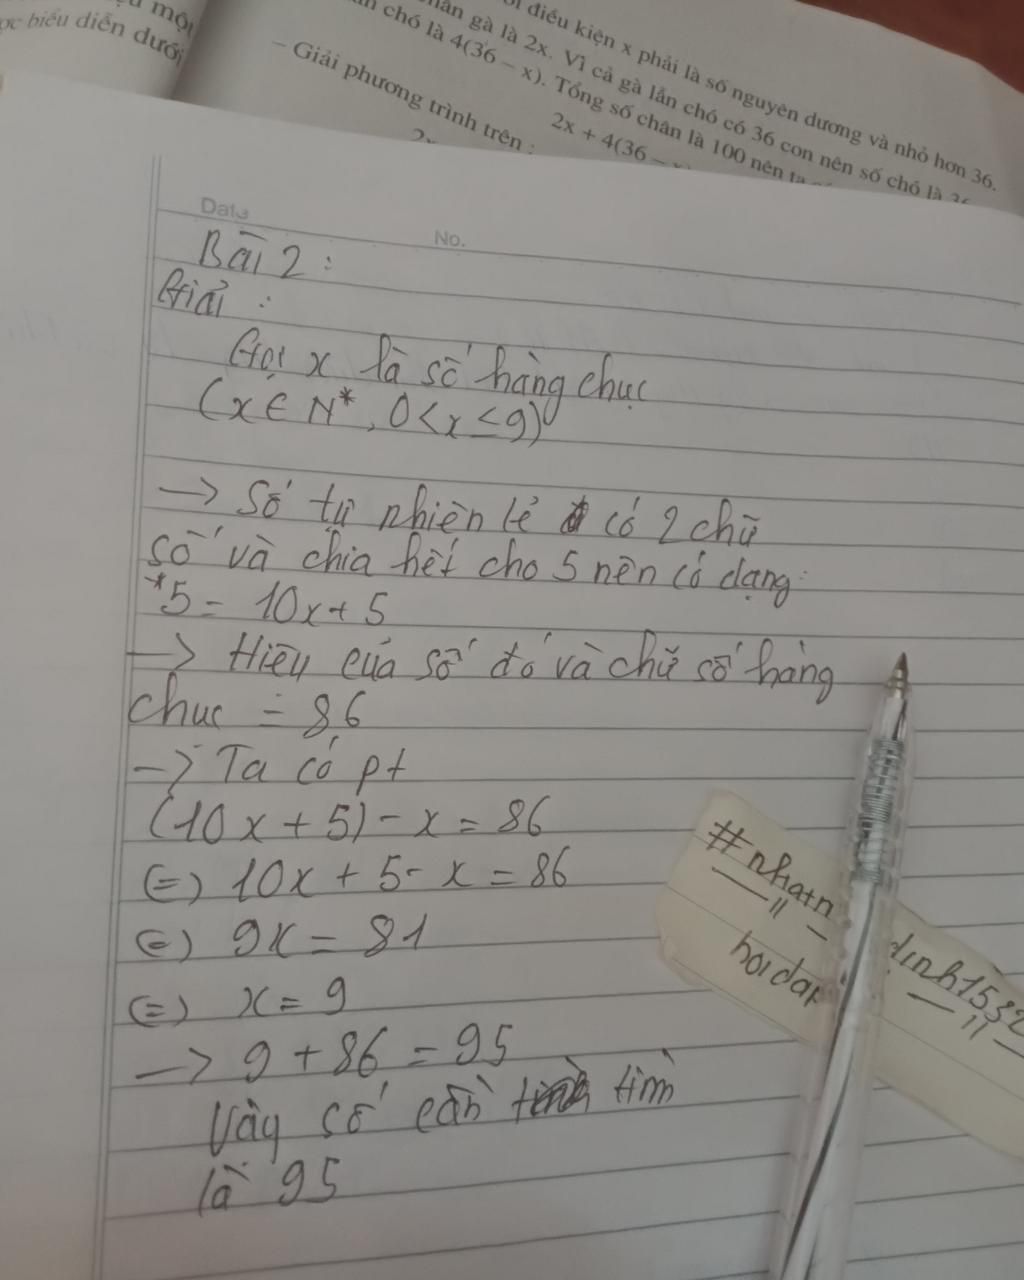 một
ợc biểu diễn dưới
điều kiện x phải là số nguyên dương và nhỏ hơn 36.
chân gà là 2x. Vì cả gà lẫn chó có 36 con nên số chó là
chó là 4(36 – x). Tổng số chân là 100 nên ta
2x + 4(36 –
– Giải phương trình trên :
Date
No.
Bài 2 :
Giải :
Gọi x là số hàng chục
(x ∈ N*, 0 < x ≤ 9)
→ Số tự nhiên lẻ có 2 chữ
số và chia hết cho 5 nên có dạng:
*5 = 10x + 5
→ Hiệu của số đó và chữ số hàng
chục = 86
→ Ta có pt
(10x + 5) - x = 86
(=) 10x + 5 - x = 86
(=) 9x = 81
(=) x = 9
→ 9 + 86 = 95
Vậy số cần tìm
là 95
#nhatn dinh1532
hoidap